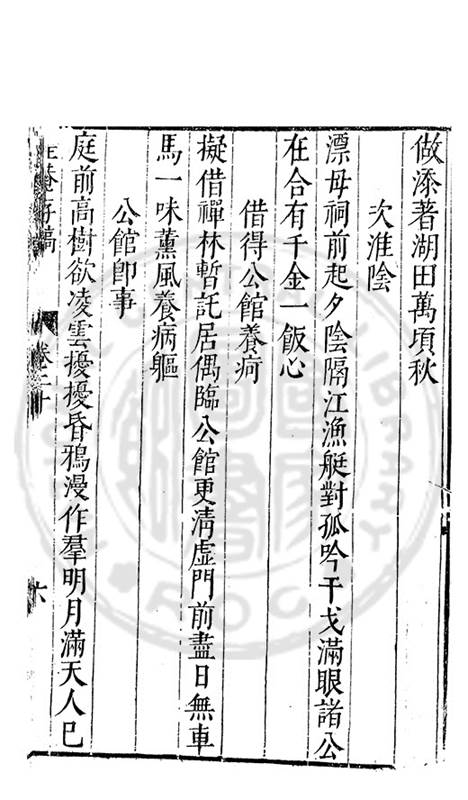 做添著湖田萬頃秋
次淮陰
漂母祠前起夕陰隔江漁艇對孤吟干戈滿眼諸公
在合有千金一飯心
借得公館養疴
擬借禪林暫託居偶臨公館更清虛門前盡日無車
馬一味薰風養病軀
公館即事
庭前高樹欲凌雲擾擾昏鴉漫作羣明月滿天人已
存稿 卷之二十 六